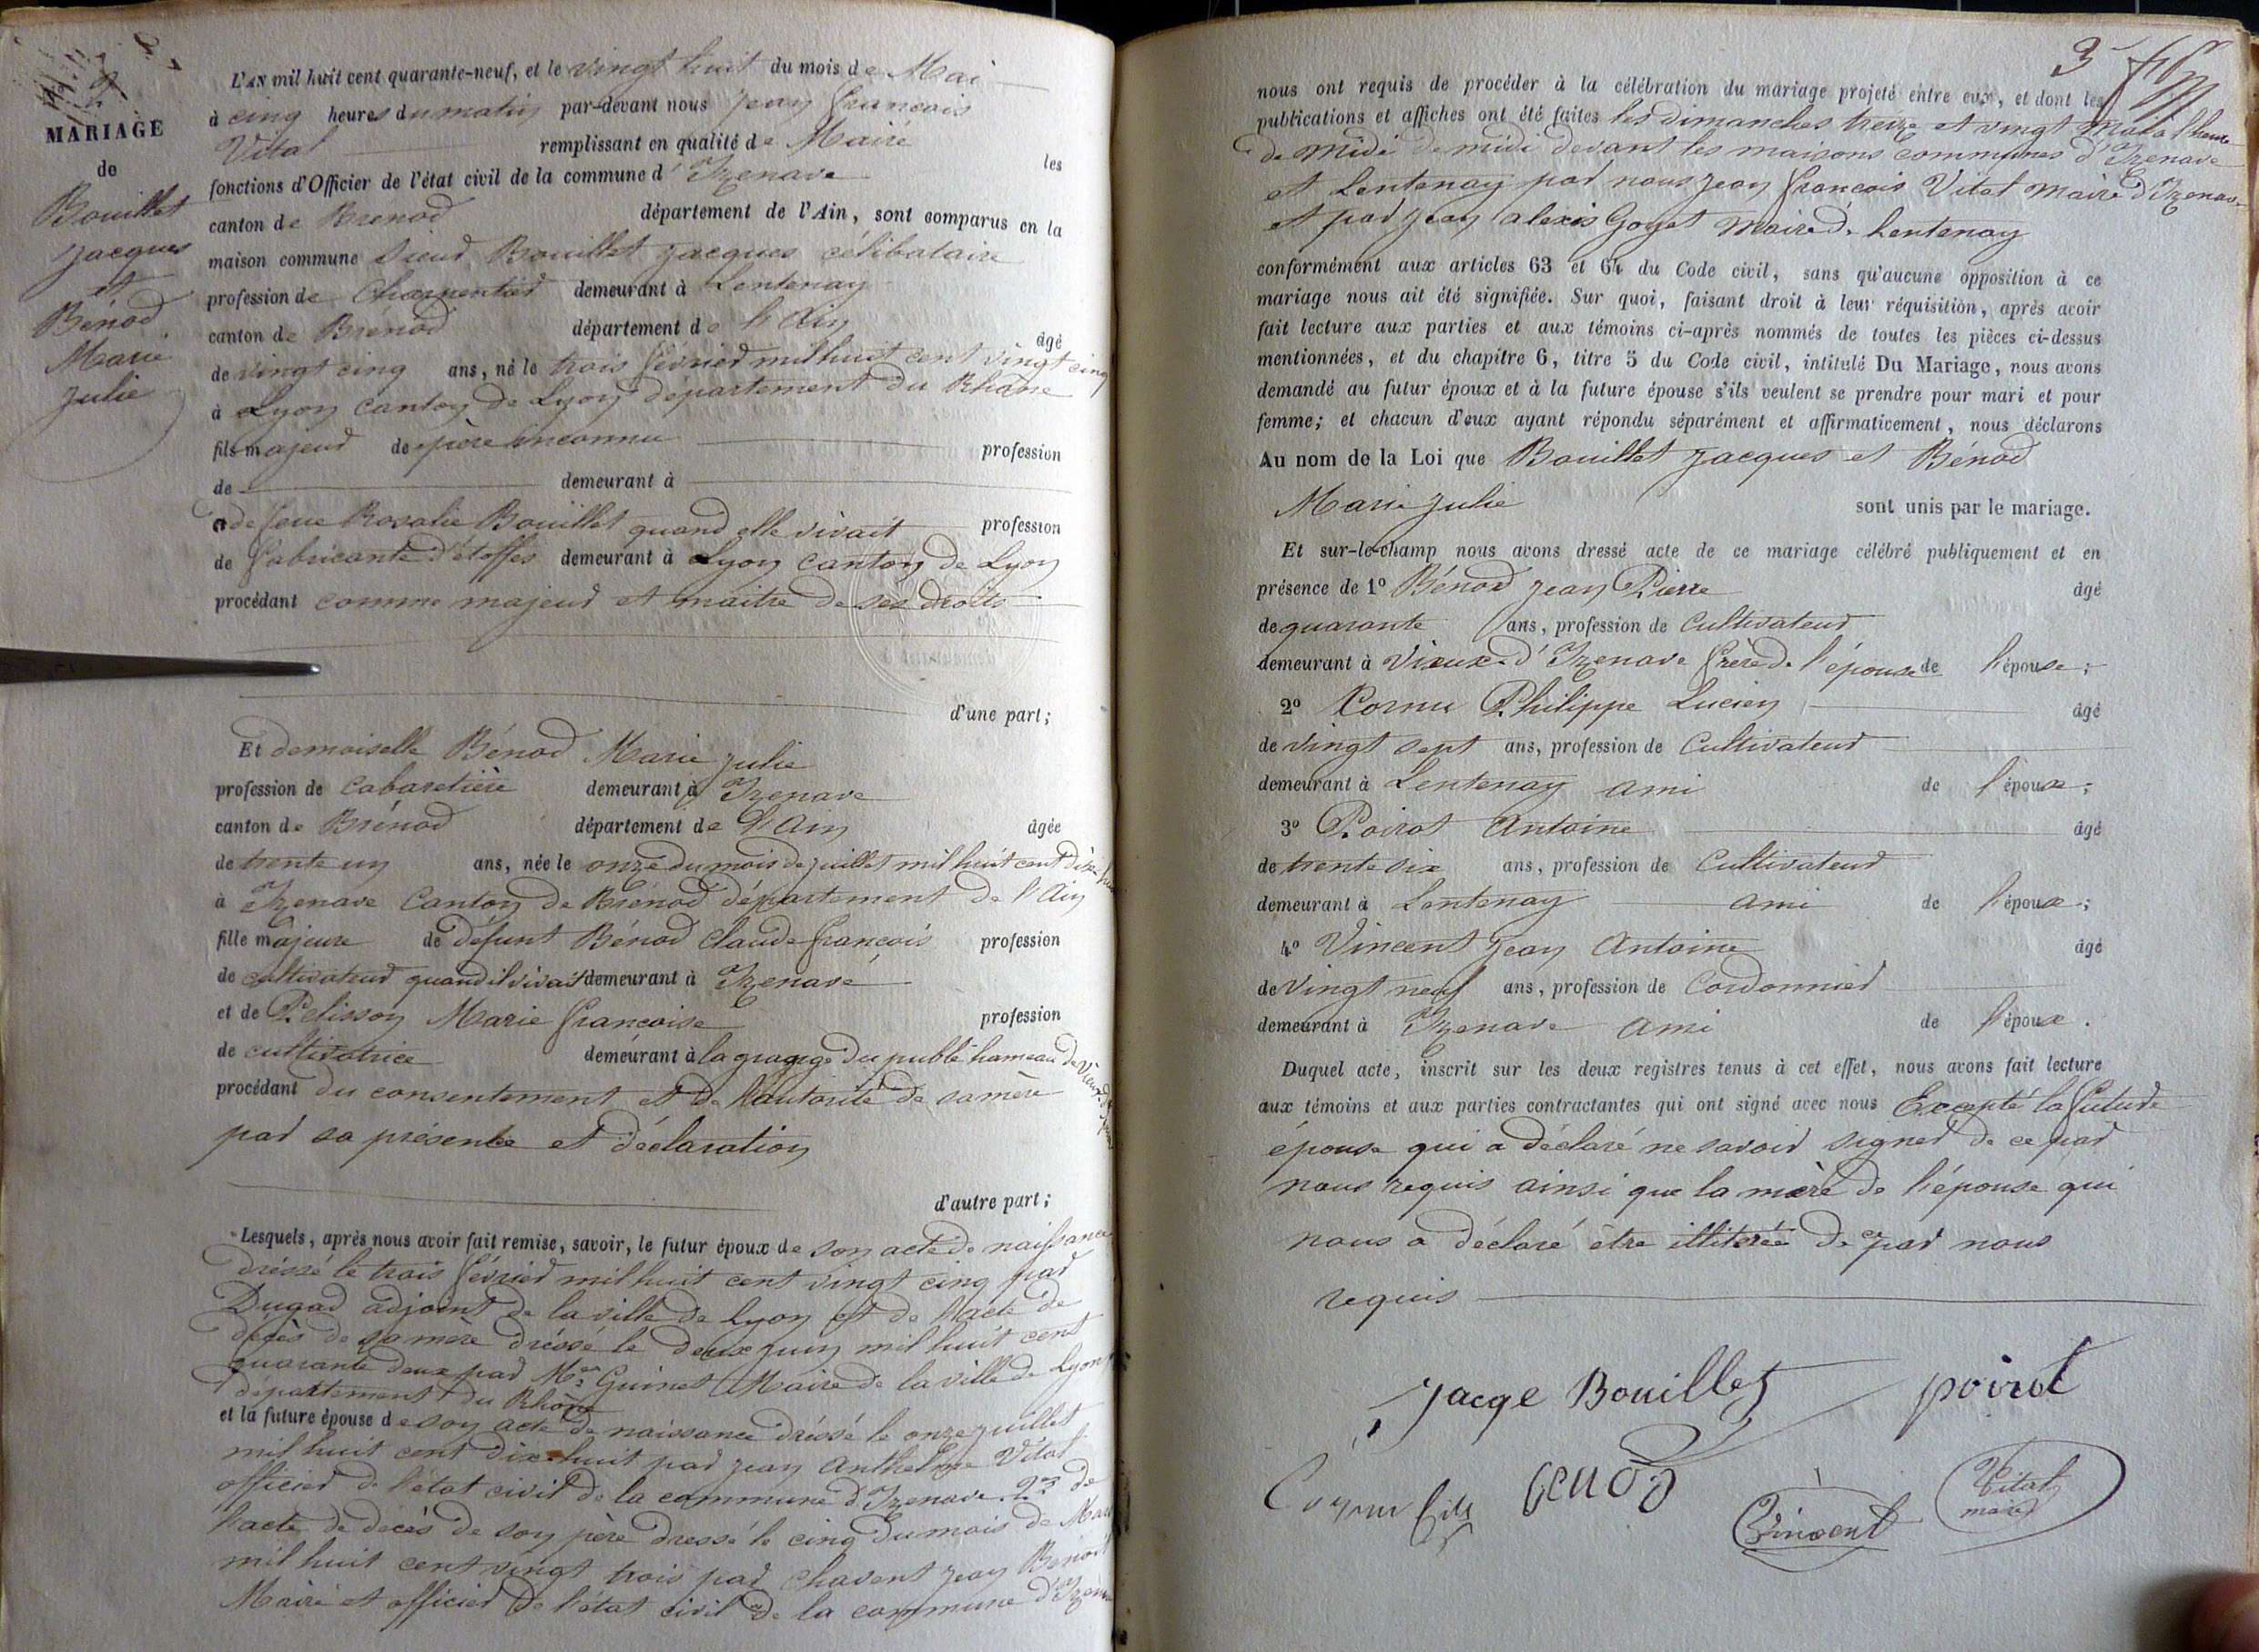 MARIAGE
de
Bouillet
Jacques
et
Bénod
Marie
Julie
L'AN mil huit cent quarante-neuf, et le vingt huit du mois de Mai
à cinq heures du matin par-devant nous Jean François
Vital remplissant en qualité de Maire les
fonctions d'Officier de l'état civil de la commune d'Izenave
canton de Brenod département de l'Ain, sont comparus en la
maison commune Sieur Bouillet Jacques célibataire
profession de Charpentier demeurant à Lentenay
canton de Brénod département de l'Ain âgé
de vingt cinq ans, né le trois février mil huit cent vingt cinq
à Lyon canton de Lyon département du Rhône
fils majeur de père inconnu profession
de demeurant à
de feue Rosalie Bouillet quand elle vivait profession
de fabricante d'étoffes demeurant à Lyon canton de Lyon
procédant comme majeur et maitre de ses droits
d'une part;
Et demoiselle Bénod Marie Julie
profession de cabaretière demeurant à Izenave
canton de Brénod département de l'Ain âgée
de trente un ans, née le onze du mois de juillet mil huit cent dix huit
à Izenave Canton de Brénod département de l'Ain
fille majeure de défunt Bénod Claude françois profession
de cultivateur quand il vivait demeurant à Izenave
et de Pelisson Marie françoise profession
de cultivatrice demeurant à la grange du publé hameau de Vieux d'Izenave
procédant du consentement et de l'autorité de sa mère
par sa présence et déclaration
d'autre part;
Lesquels, après nous avoir fait remise, savoir, le futur époux de son acte de naissance
dréssé le trois février mil huit cent vingt cinq par
Dugad adjoint de la ville de Lyon et de l'acte de
décès de sa mère dréssé le deux juin mil huit cent
quarante deux par Mr Guinet Maire de la ville de Lyon
département du Rhône
et la future épouse de son acte de naissance dréssé le onze juillet
mil huit cent dix huit par Jean Anthelme Vital
officier de l'état civil de la commune d'Izenave. 2° de
l'acte de décès de son père dressé le cinq du mois de Mars
mil huit cent vingt trois par Chavent Jean Benoit
Maire et officier de l'état civil de la commune d'Izenave
3
nous ont requis de procéder à la célébration du mariage projeté entre eux, et dont les
publications et affiches ont été faites les dimanches treize et vingt Mai à l'heure
de midi de midi devant les maisons communes d'Izenave
et Lentenay par nous Jean françois Vital maire d'Izenave
et par Jean alexis Goyet Maire de Lentenay
conformément aux articles 63 et 64 du Code civil, sans qu'aucune opposition à ce
mariage nous ait été signifiée. Sur quoi, faisant droit à leur réquisition, après avoir
fait lecture aux parties et aux témoins ci-après nommés de toutes les pièces ci-dessus
mentionnées, et du chapitre 6, titre 5 du Code civil, intitulé Du Mariage, nous avons
demandé au futur époux et à la future épouse s'ils veulent se prendre pour mari et pour
femme; et chacun d'eux ayant répondu séparément et affirmativement, nous déclarons
Au nom de la Loi que Bouillet Jacques et Bénod
Marie Julie sont unis par le mariage.
Et sur-le-champ nous avons dressé acte de ce mariage célébré publiquement et en
présence de 1° Bénod Jean Pierre âgé
de quarante ans, profession de Cultivateur
demeurant à Vieux d'Izenave frère de l'épouse de l'épouse;
2° Cornu Philippe Lucien âgé
de vingt sept ans, profession de Cultivateur
demeurant à Lentenay ami de l'époux;
3° Poirot Antoine âgé
de trente six ans, profession de Cultivateur
demeurant à Lentenay ami de l'époux;
4° Vincent Jean Antoine âgé
de Vingt neuf ans, profession de Cordonnier
demeurant à Izenave ami de l'époux.
Duquel acte, inscrit sur les deux registres tenus à cet effet, nous avons fait lecture
aux témoins et aux parties contractantes qui ont signé avec nous Excepté la future
épouse qui a déclaré ne savoir signer de ce par
nous requis ainsi que la mère de l'épouse qui
nous a déclaré être illiterée de ce par nous
requis
Jacqe Bouillet poirot
benod
Vincent
Vital
maire